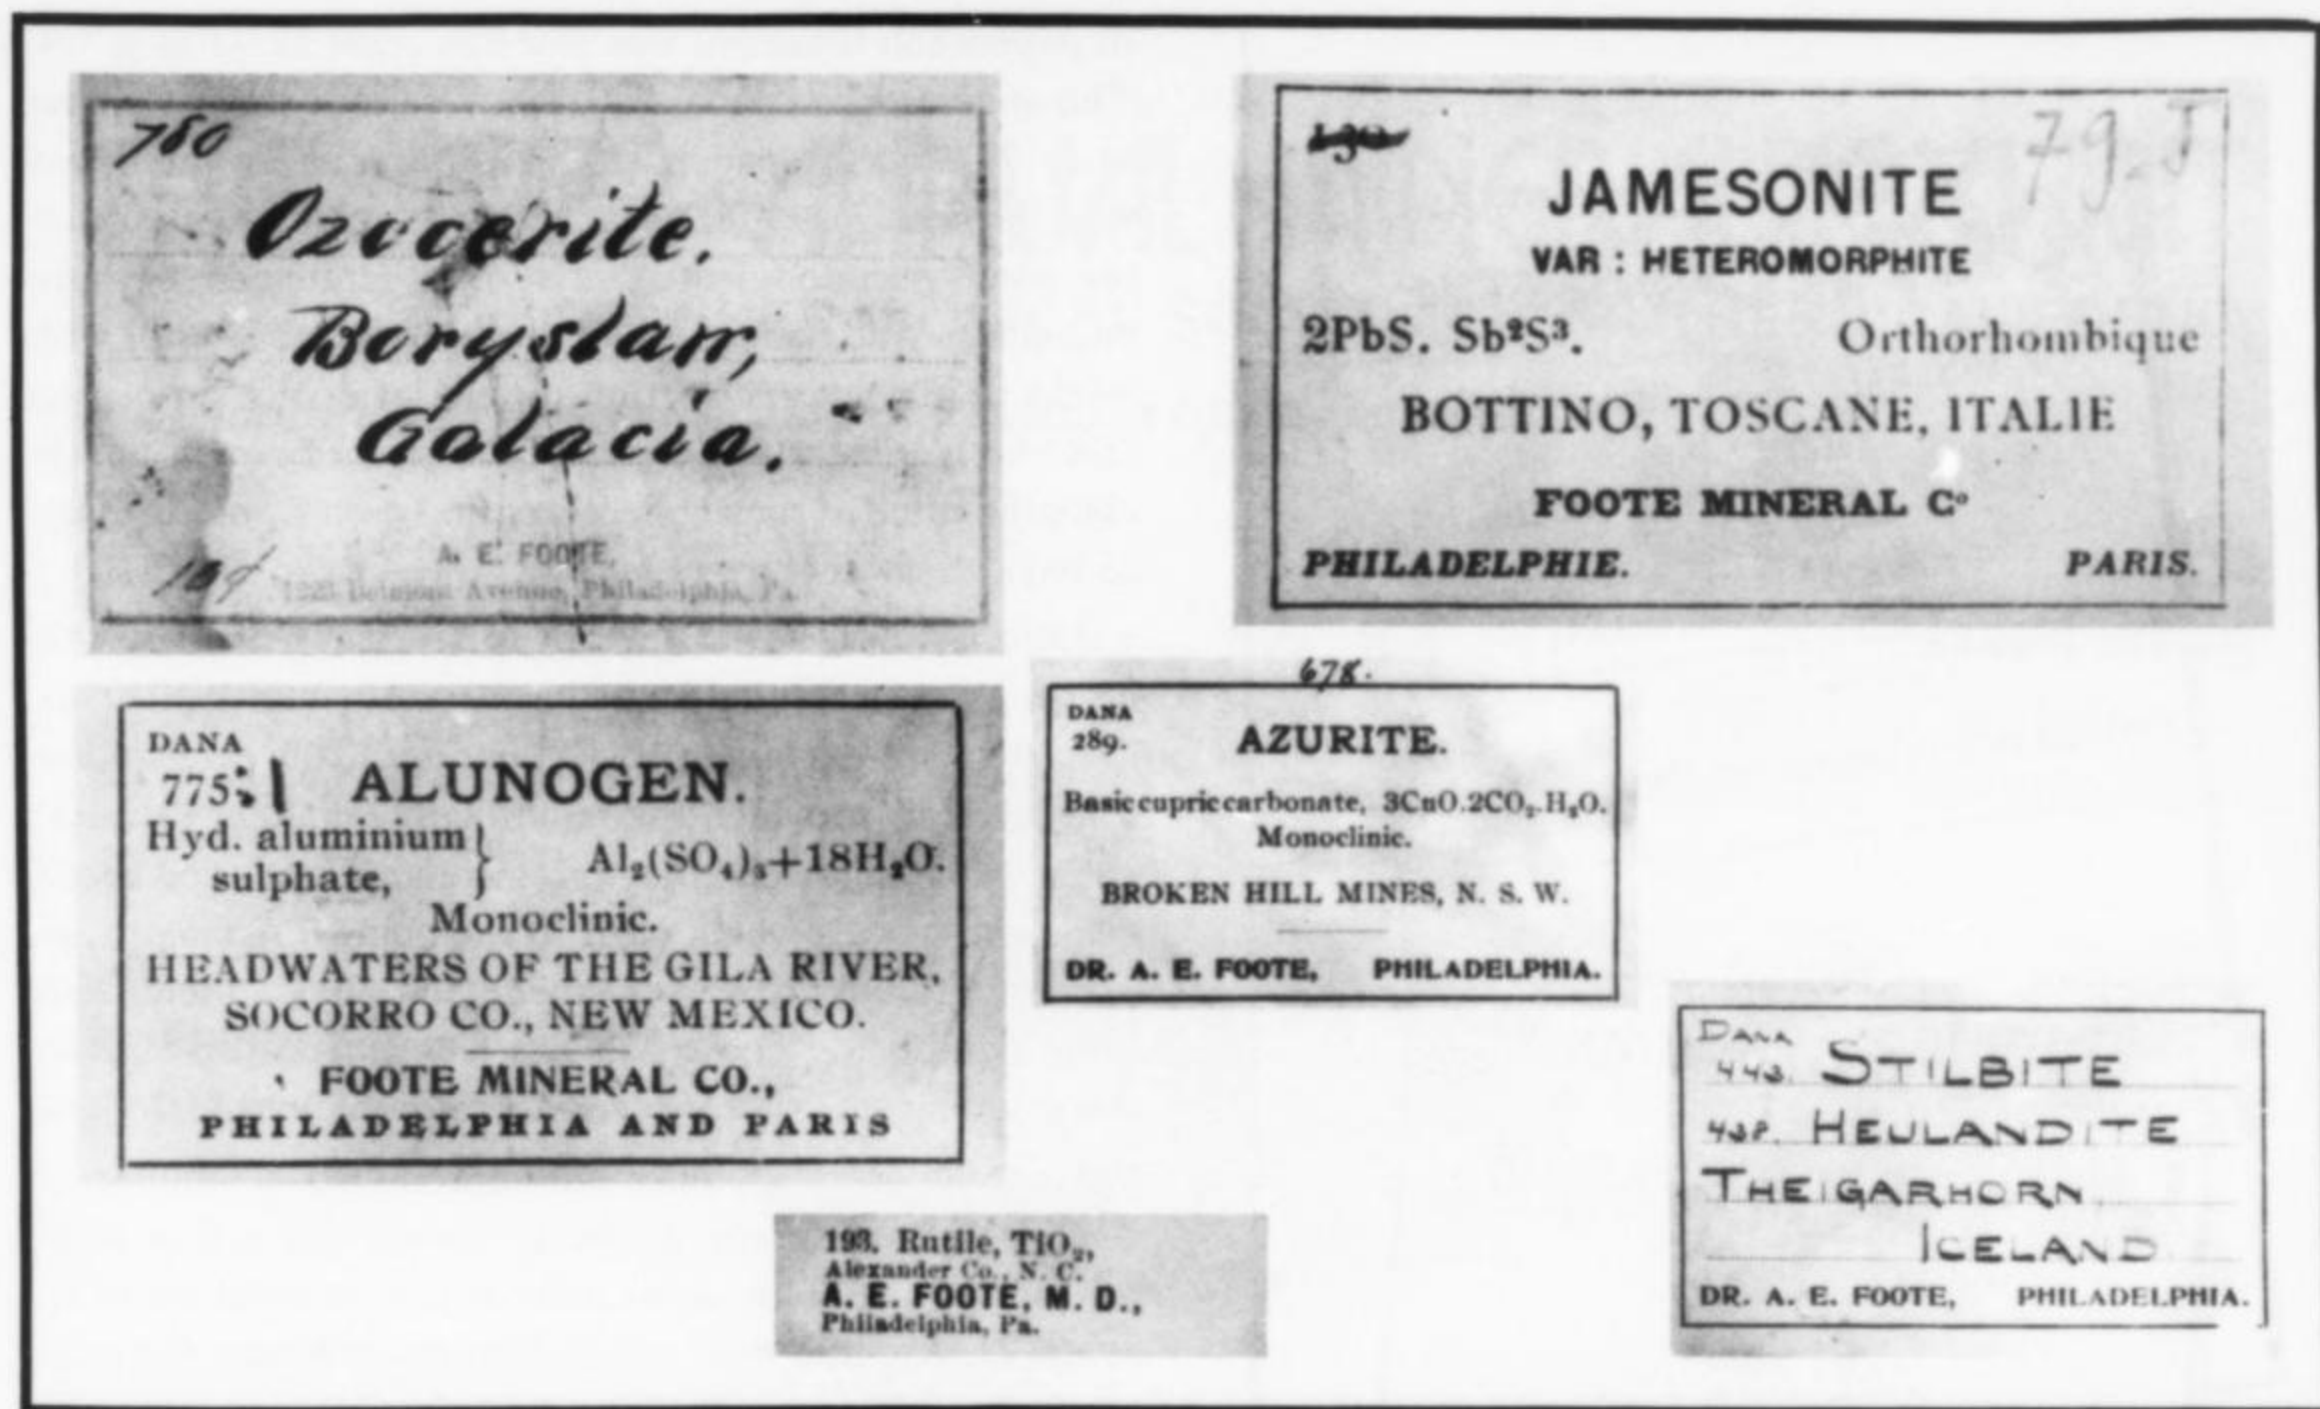 760
Ozocerite.
Boryslaw,
Galacia.
A. E. FOOTE,
1223 Belmont Avenue, Philadelphia, Pa.
79-J
JAMESONITE
VAR : HETEROMORPHITE
2PbS. Sb²S³. Orthorhombique
BOTTINO, TOSCANE, ITALIE
FOOTE MINERAL Cº
PHILADELPHIE. PARIS.
DANA
775 ALUNOGEN.
Hyd. aluminium
sulphate, } Al₂(SO₄)₃+18H₂O.
Monoclinic.
HEADWATERS OF THE GILA RIVER,
SOCORRO CO., NEW MEXICO.
FOOTE MINERAL CO.,
PHILADELPHIA AND PARIS
678.
DANA
289. AZURITE.
Basic cupric carbonate, 3CuO.2CO₂.H₂O.
Monoclinic.
BROKEN HILL MINES, N. S. W.
DR. A. E. FOOTE, PHILADELPHIA.
193. Rutile, TiO₂,
Alexander Co., N. C.
A. E. FOOTE, M. D.,
Philadelphia, Pa.
DANA
443. STILBITE
438. HEULANDITE
THEIGARHORN
ICELAND
DR. A. E. FOOTE, PHILADELPHIA.